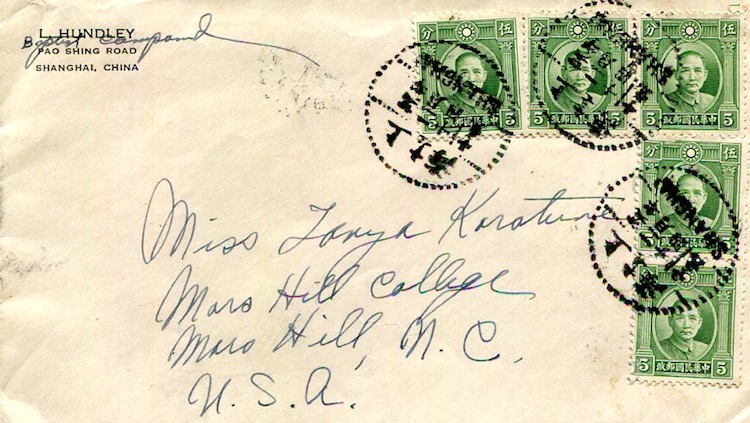 L. HUNDLEY
Baptist Compound
PAO SHING ROAD
SHANGHAI, CHINA
分 伍
5 政郵國民華中 5
分 伍
5 政郵國民華中 5
分 伍
5 政郵國民華中 5
分 伍
5
分 伍
5 政郵國民華中 5
上海
SHANGHAI
Miss Tanya
Mars Hill College
Mars Hill, N. C.
U. S. A.